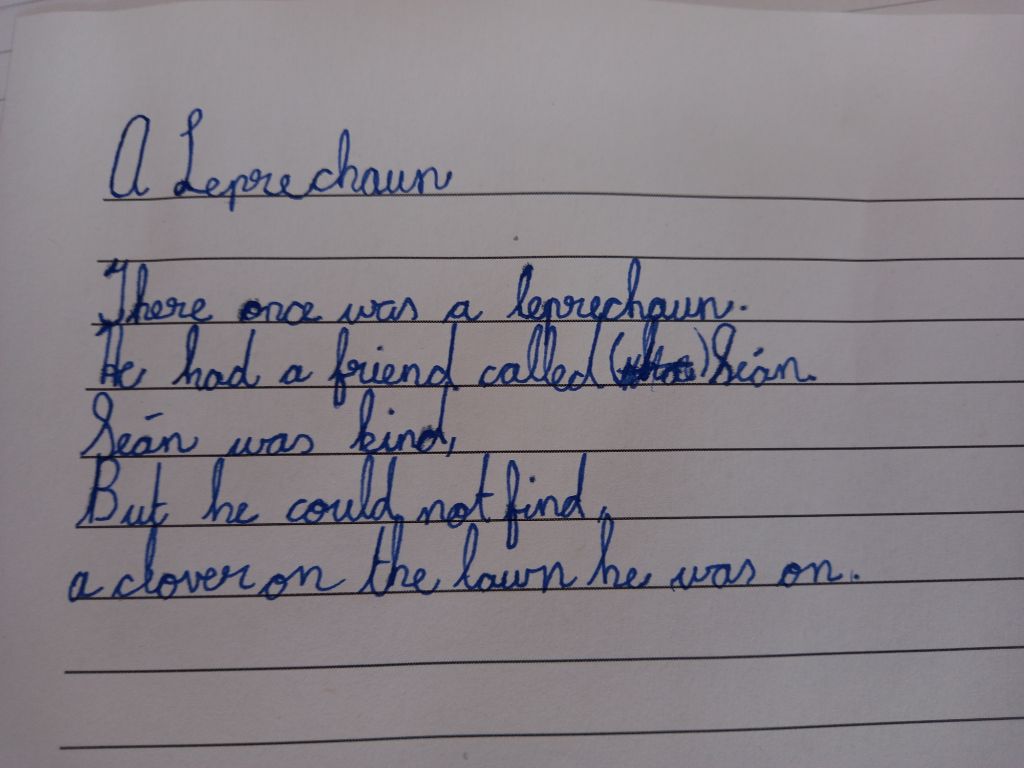 A Leprechaun
There once was a leprechaun.
He had a friend called () Seán.
Seán was kind,
But he could not find,
a clover on the lawn he was on.